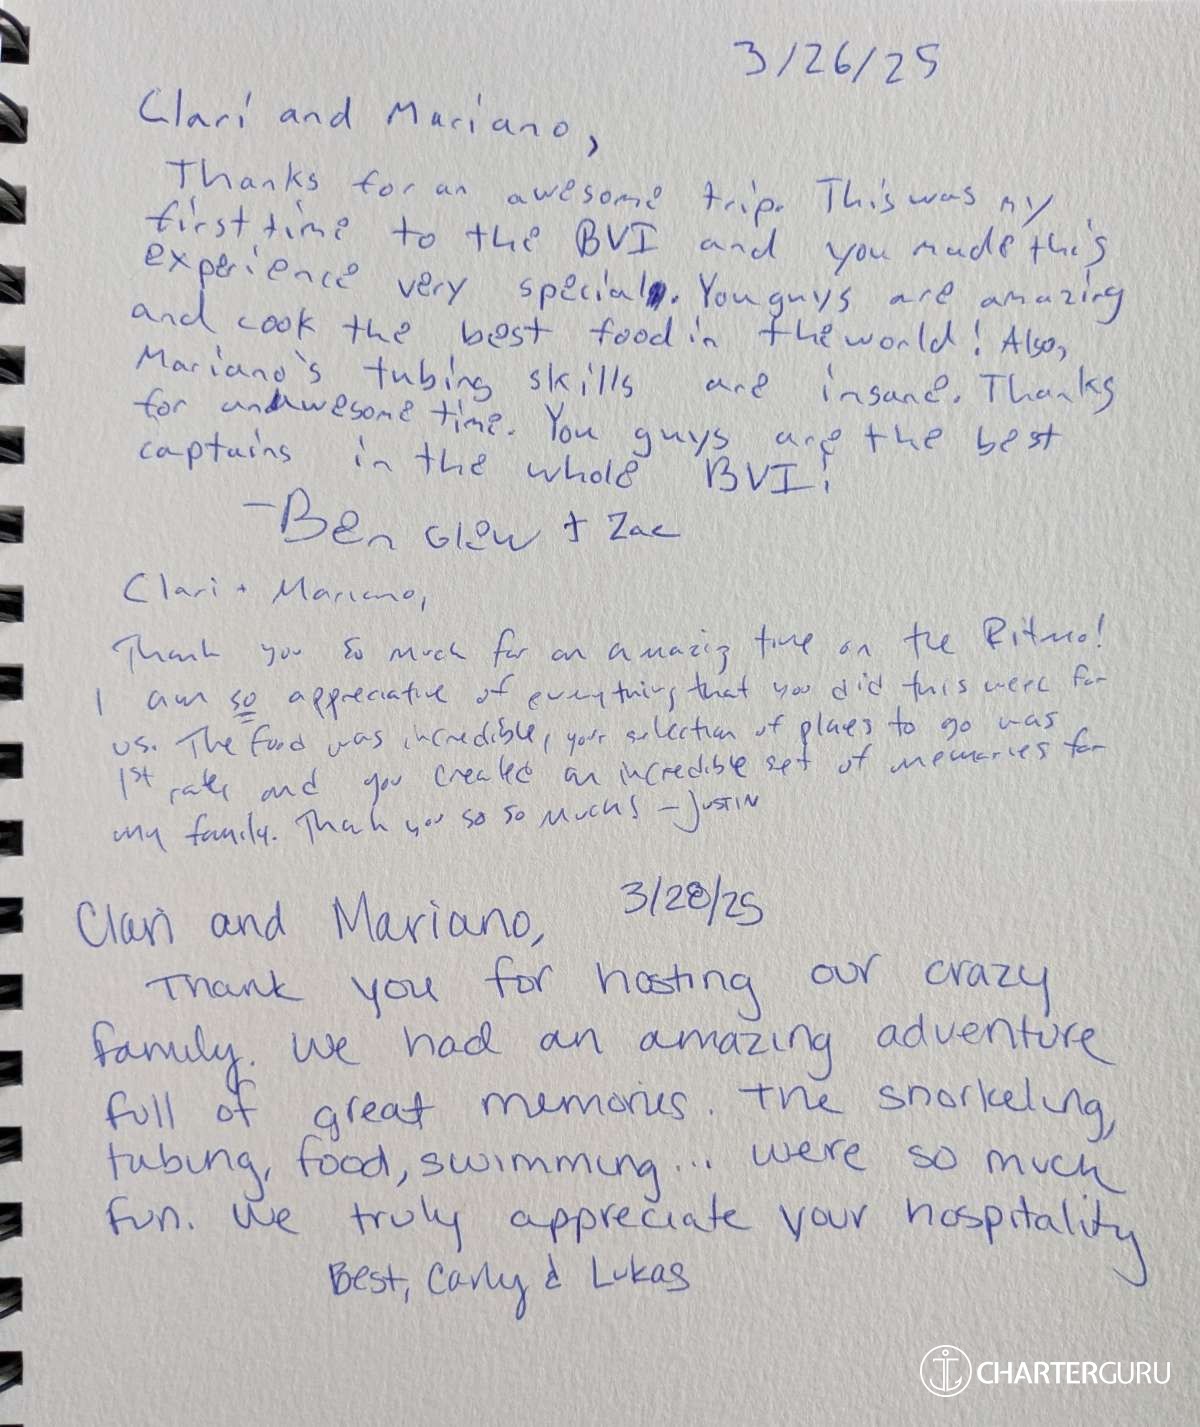 3/26/25
Clari and Mariano,
Thanks for an awesome trip. This was my
first time to the BVI and you made this
experience very special. You guys are amazing
and cook the best food in the world! Also,
Mariano's tubing skills are insane. Thanks
for an awesome time. You guys are the best
captains in the whole BVI!
- Ben Glew + Zac
Clari + Mariano,
Thank you so much for an amazing time on the Ritmo!
I am so appreciative of everything that you did this week for
us. The food was incredible, your selection of places to go was
1st rate and you created an incredible set of memories for
my family. Thank you so so much! - Justin
Clari and Mariano, 3/28/25
Thank you for hosting our crazy
family. We had an amazing adventure
full of great memories. The snorkeling,
tubing, food, swimming... were so much
fun. We truly appreciate your hospitality
Best, Carly & Lukas
CHARTERGURU